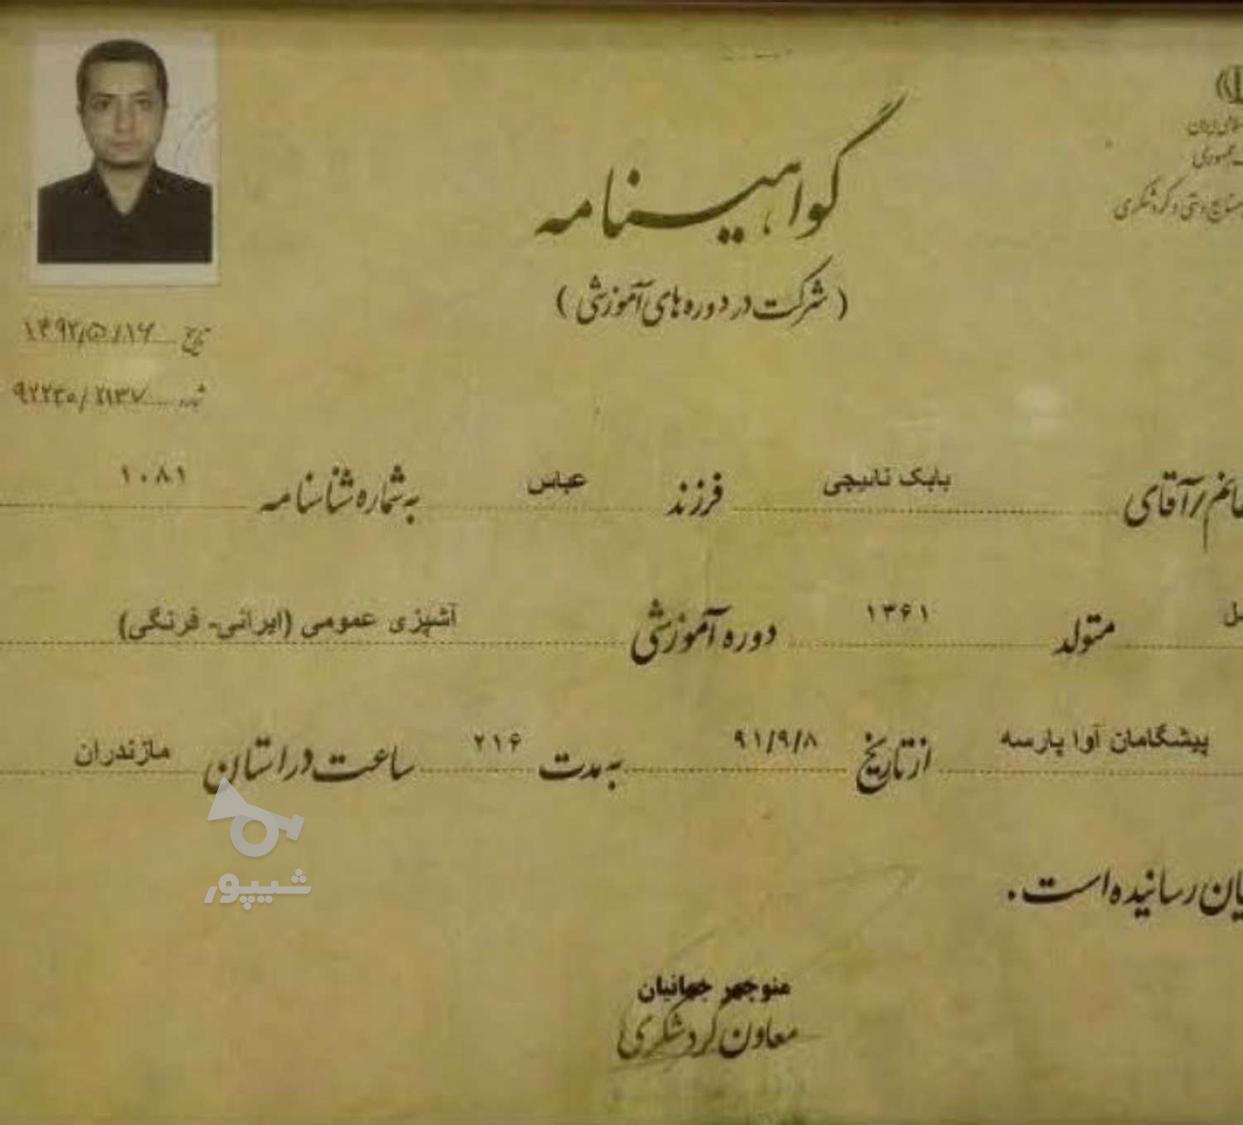 گواهینامه
(شرکت در دوره های آموزشی)
صنایع دستی و گردشگری
تاریخ ۱۳۹۲/۵/۱۶
شماره ۹۲۲۳۰/۲۱۳۷
خانم/آقای بابک نائیجی فرزند عباس به شماره شناسنامه ۱۰۸۱
متولد ۱۳۶۱ دوره آموزشی آشپزی عمومی (ایرانی- فرنگی)
پیشگامان آوا پارسه از تاریخ ۹۱/۹/۸ به مدت ۲۱۶ ساعت در استان مازندران
رسانیده است.
شیپور
منوچهر جهانیان
معاون گردشگری